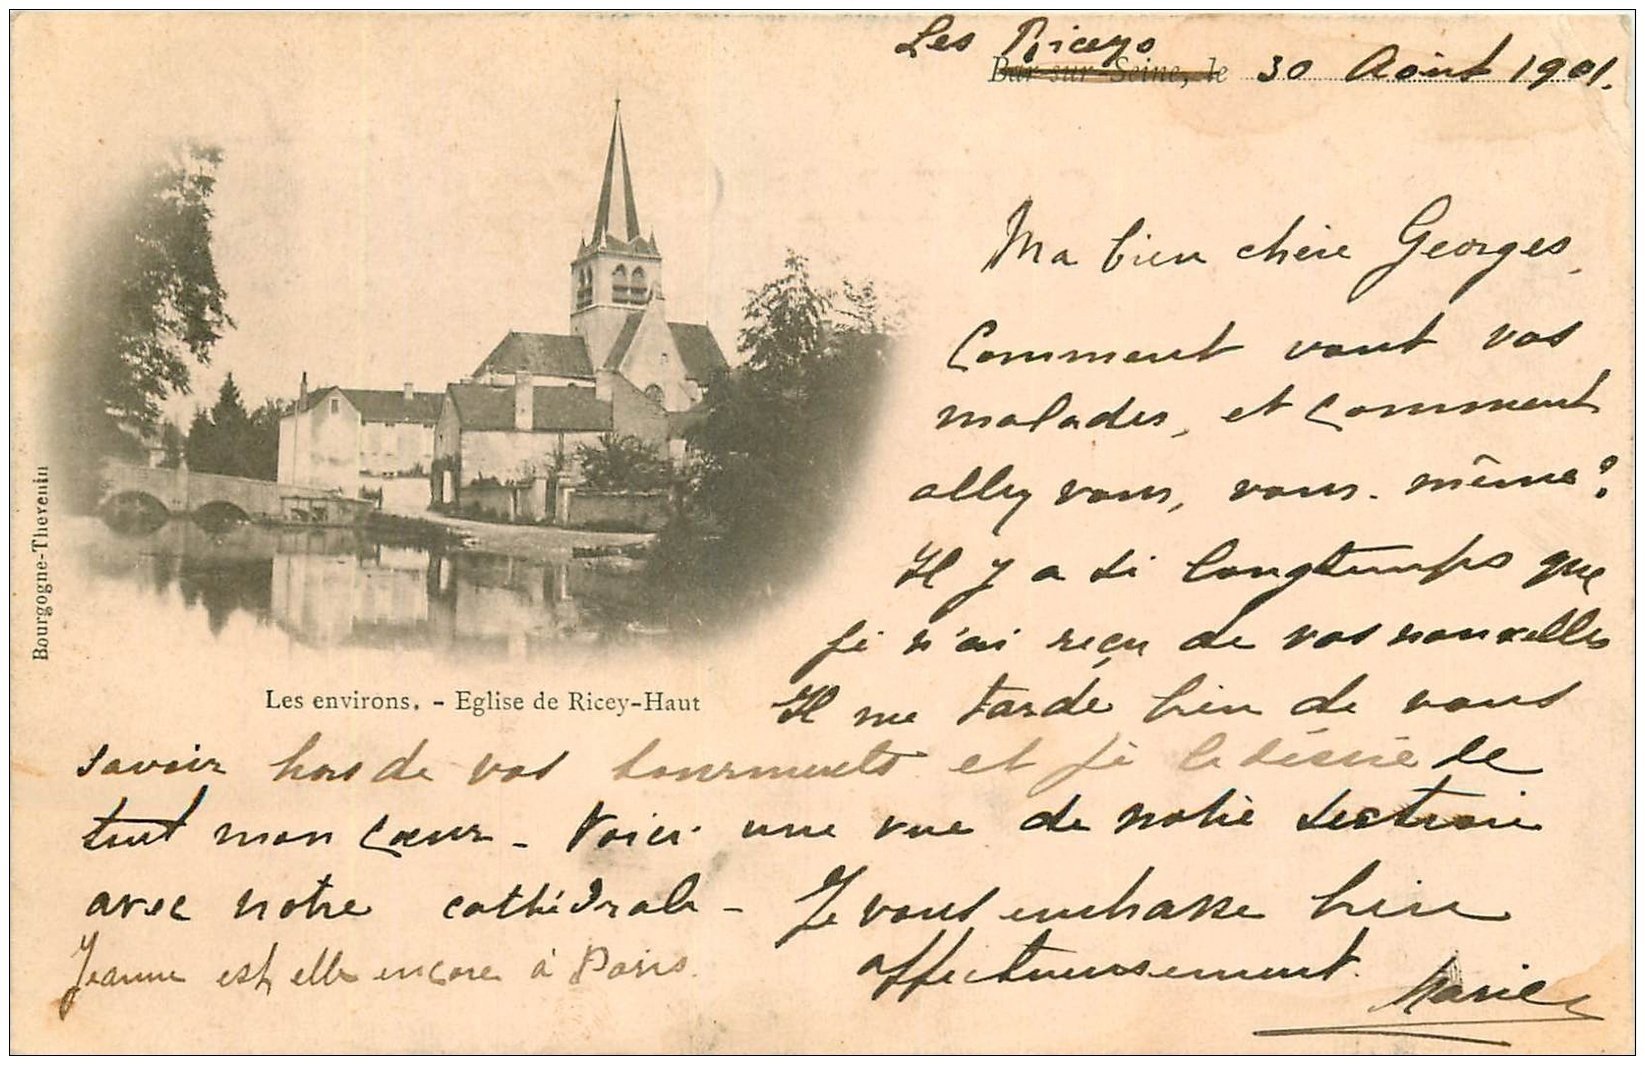 Les Riceys
Bar-sur-Seine, le 30 Août 1901.
Ma bien chère Georges,
Comment vont vos
malades, et comment
allez vous, vous-même?
Il y a si longtemps que
je n'ai reçu de vos nouvelles
Il me tarde bien de vous
savoir hors de vos tourments et je le désire de
tout mon cœur - Voici une vue de notre
avec notre cathédrale - Je vous embrasse bien
affectueusement.
Jeanne est elle encore à Paris.
Marie
Les environs. - Eglise de Ricey-Haut
Bourgogne-Thevenin